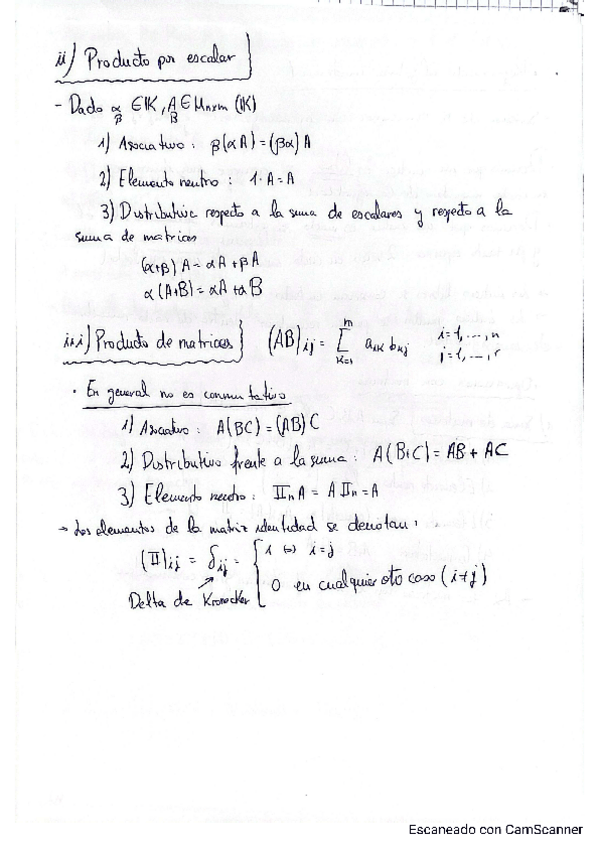 ii) Producto por escalar
- Dado α, β ∈ IK, A, B ∈ Mnxm (IK)
1) Asociativo: β(αA) = (βα)A
2) Elemento neutro: 1·A = A
3) Distributiva respecto a la suma de escalares y respecto a la
suma de matrices
(α+β)A = αA + βA
α(A+B) = αA + αB
iii) Producto de matrices (AB)ij = Σ_{k=1}^{m} aik bkj i=1,...,n j=1,...,r
· En general no es conmutativo
1) Asociativo: A(BC) = (AB)C
2) Distributivo frente a la suma: A(B+C) = AB + AC
3) Elemento neutro: IInA = AIIn = A
→ Los elementos de la matriz identidad se denotan:
(II)ij = δij = { 1 ⇔ i=j
0 en cualquier oto caso (i≠j)
Delta de Kronocker
Escaneado con CamScanner